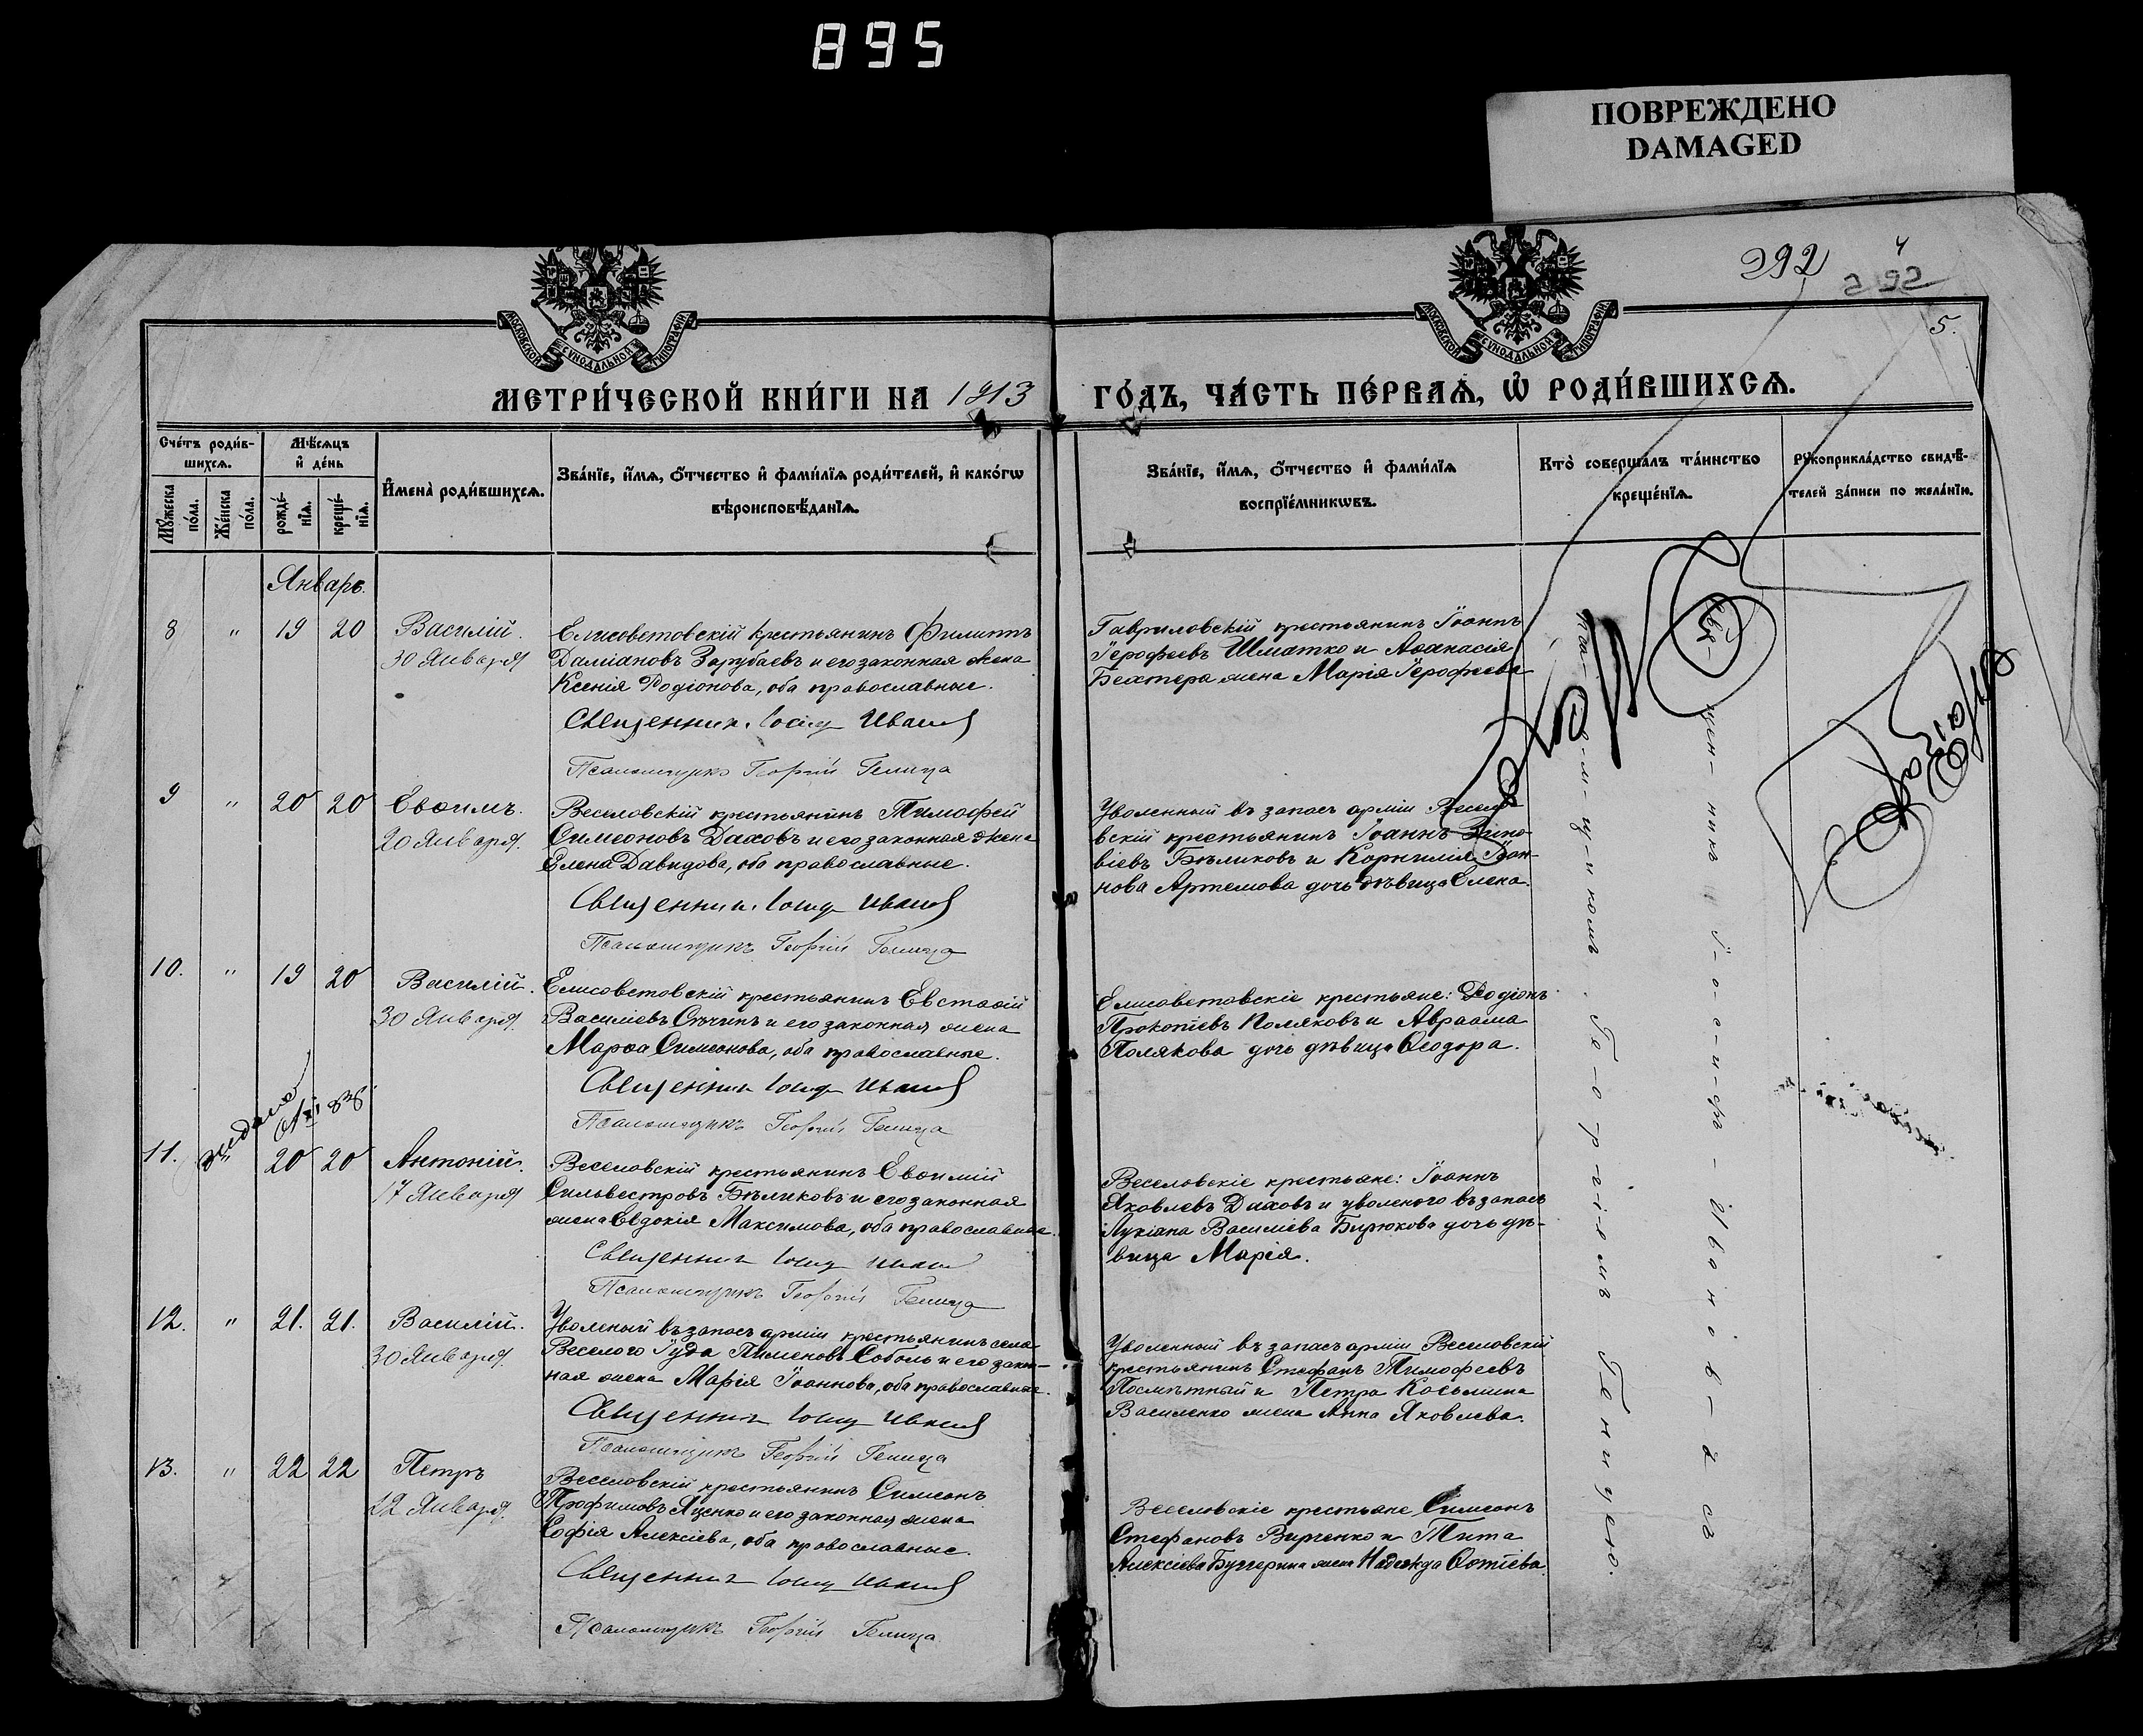 895
ПОВРЕЖДЕНО
DAMAGED
292
4
292
5.
МОСКОВСКОЙ СѴНОДАЛЬНОЙ ТИПОГРАФІИ
МОСКОВСКОЙ СѴНОДАЛЬНОЙ ТИПОГРАФІИ
МЕТРИ́ЧЕСКОЙ КНИ́ГИ НА 1913 ГО́ДЪ, ЧА́СТЬ ПЕ́РВАѦ, Ѡ҆ РОДИ́ВШИХСѦ.
Сче́тъ роди́в-
шихсѧ.
Мꙋ́жеска по́ла.
Же́нска по́ла.
Мѣ́сѧцъ
и҆ де́нь
рожде́-
нїѧ.
креще́-
нїѧ.
И҆мена̀ роди́вшихсѧ.
Зва́нїе, и҆́мѧ, ѻ҆́тчество и҆ фами́лїѧ роди́телей, и҆ како́гѡ
вѣроисповѣ́данїѧ.
Зва́нїе, и҆́мѧ, ѻ҆́тчество и҆ фами́лїѧ
воспрїе́мникѡвъ.
Кто̀ соверша́лъ та́инство
креще́нїѧ.
Рꙋкоприкла́дство свидѣ́-
телей за́писи по жела́нїю.
Январь.
8 " 19 20 Василій.
30 Января
Елисоветовскій крестьянинъ Филиппъ
Даміановъ Зарубаевъ и его законная жена
Ксенія Родіонова, оба православные.
Священник Іосиф Иванов
Псаломщикъ Георгій Гепица
Гавриловскій крестьянинъ Іоаннъ
Іерофеевъ Шматко и Аѳанасія
Бехтера жена Марія Іерофеева
9 " 20 20 Евѳимъ.
20 Января.
Веселовскій крестьянинъ Тимофей
Симеоновъ Даховъ и его законная жена
Елена Давидова, оба православные.
Священник Іосиф Иванов
Псаломщикъ Георгій Гепица
Уволенный въ запасъ арміи Весело-
вскій крестьянинъ Іоаннъ Зино-
віевъ Бѣликовъ и Корнилія Іоан-
нова Артемова дочь дѣвица Елена.
10. " 19 20 Василій.
30 Января.
Елисоветовскій крестьянинъ Евстаѳій
Василіевъ Сѣчинъ и его законная жена
Марѳа Симеонова, оба православные.
Священник Іосиф Иванов
Псаломщикъ Георгій Гепица
Елисаветовскіе крестьяне: Родіонъ
Прокопіевъ Поляковъ и Авраама
Полякова дочь дѣвица Ѳеодора.
11. 20 20 Антоній.
17 Января
Веселовскій крестьянинъ Евѳимій
Сильвестровъ Бѣликовъ и его законная
жена Евдокія Максимова, оба православные.
Священник Іосиф Иванов
Псаломщикъ Георгій Гепица
Веселовскіе крестьяне: Іоаннъ
Яковлевъ Даховъ и уволеного въ запасъ
Лукіана Василіева Бирюкова дочь дѣ-
вица Марія.
12. " 21. 21. Василій.
30 Января.
Уволеный въ запасъ арміи крестьянинъ села
Веселого Іуда Пименовъ Соболь и его закон-
ная жена Марія Іоаннова, оба православные.
Священник Іосиф Иванов
Псаломщикъ Георгій Гепица
Уволенный въ запасъ арміи Веселовскій
крестьянинъ Стефанъ Тимофеевъ
Посмѣтный и Петра Косьмина
Василенко жена Анна Яковлева.
13. " 22 22 Петръ
22 Января.
Веселовскій крестьянинъ Симеонъ
Трофимовъ Яценко и его законная жена
Софія Алексіева, оба православные.
Священник Іосиф Иванов
Псаломщикъ Георгій Гепица
Веселовскіе крестьяне Симеонъ
Стефановъ Вирченко и Тита
Алексіева Бугерина жена Надежда Ѳотіева.